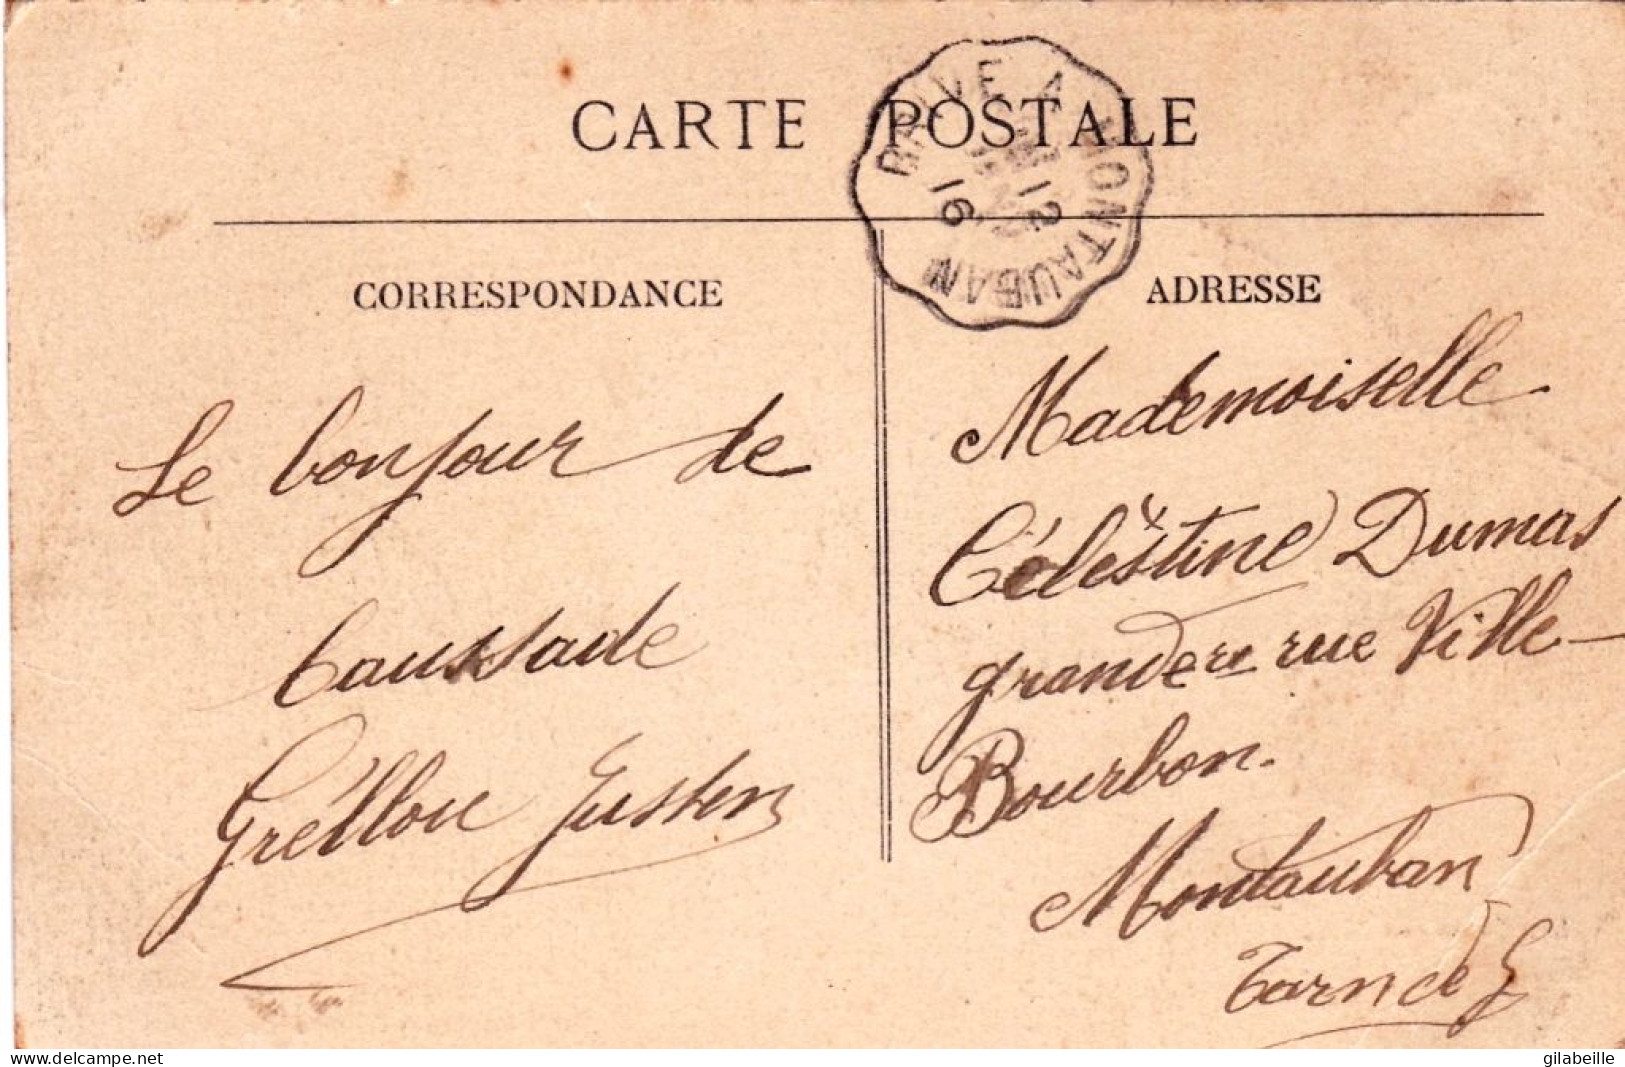 CARTE POSTALE
BRIVE A MONTAUBAN
12
16
CORRESPONDANCE
ADRESSE
Le bonjour de
Caussade
Gréllou Justen
Mademoiselle
Céléstine Dumas
grande rue Ville-
Bourbon.
Montauban
Tarn et G
www.delcampe.net
gilabeille